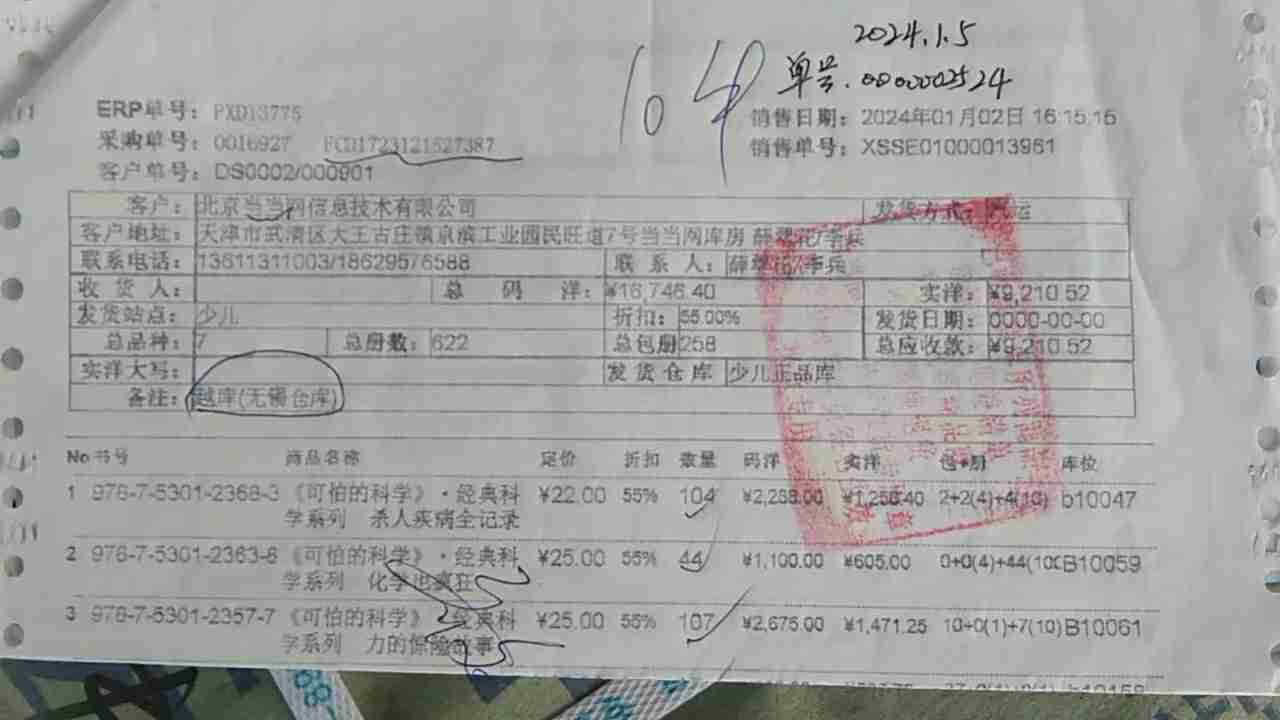 2024.1.5
104
单号.0000002524
ERP单号: PXD13775
销售日期: 2024年01月02日 16:15:15
采购单号: 0016927 FCD1723121527387
销售单号: XSSE01000013961
客户单号: DS0002/000901
客户: 北京当当网信息技术有限公司 发货方式: 汽运
客户地址: 天津市武清区大王古庄镇京滨工业园民旺道7号当当网库房
联系电话: 13611311003/18629576588 联系人:
收货人: 总码洋: ¥16,746.40 实洋: ¥9,210.52
发货站点: 少儿 折扣: 55.00% 发货日期: 0000-00-00
总品种: 7 总册数: 622 总包册 258 总应收款: ¥9,210.52
实洋大写: 发货仓库 少儿正品库
备注: 越库(无锡仓库)
No 书号 商品名称 定价 折扣 数量 码洋 实洋 包+册 库位
1 978-7-5301-2368-3 《可怕的科学》·经典科 ¥22.00 55% 104 ¥2,288.00 ¥1,258.40 2+2(4)+4(10) b10047
学系列 杀人疾病全记录
2 978-7-5301-2363-8 《可怕的科学》·经典科 ¥25.00 55% 44 ¥1,100.00 ¥605.00 0+0(4)+44(10 B10059
学系列 化学也疯狂
3 978-7-5301-2357-7 《可怕的科学》·经典科 ¥25.00 55% 107 ¥2,675.00 ¥1,471.25 10+0(1)+7(10) B10061
学系列 力的惊险故事